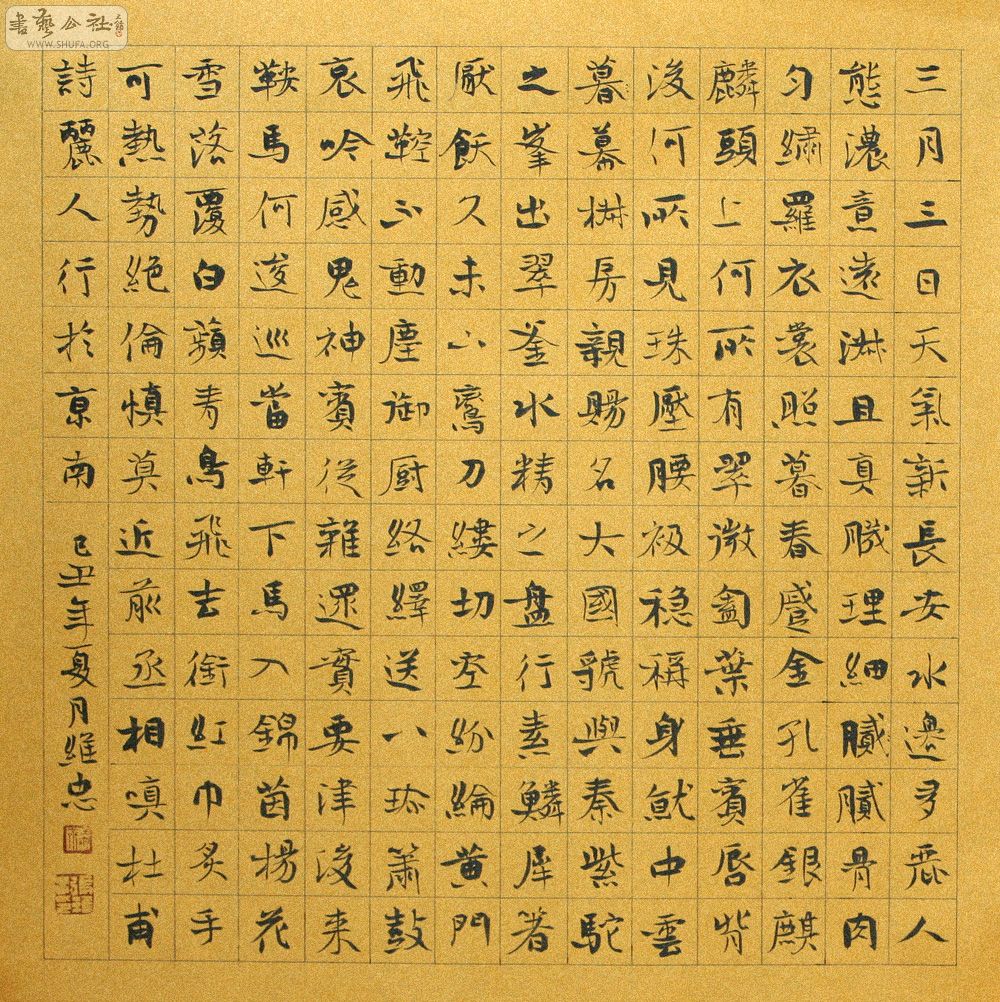 書藝公社
WWW.SHUFA.ORG
三月三日天氣新長安水邊多麗人
態濃意遠淋且真職理細膩膩骨肉
勻繡羅衣裳照暮春蹙金孔雀銀麒
麟頭上何所有翠微匎葉垂賓唇背
後何所見珠壓腰衱穩稱身就中雲
暮幕椒房親賜名大國虢與秦紫駝
之峯出翠釜水精之盤行素鱗犀箸
厭飫久未下鸞刀縷切空紛綸黃門
飛鞚不動塵御厨絡繹送八珍簫鼓
哀吟感鬼神賓從雜遝實要津後来
鞍馬何逡巡當軒下馬入錦茵楊花
雪落覆白蘋青鳥飛去銜紅巾炙手
可熱勢絕倫慎莫近前丞相嗔杜甫
詩麗人行於京南己丑年夏月維忠